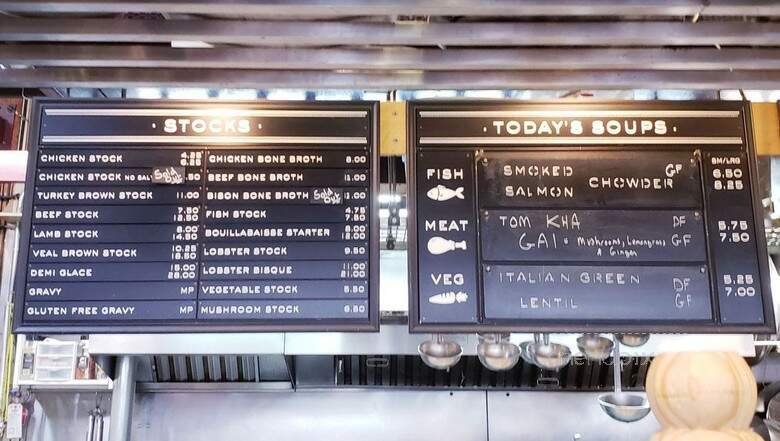 · STOCKS ·
CHICKEN STOCK 4.25 CHICKEN BONE BROTH 8.00
6.25
CHICKEN STOCK NO SALT Sold Out .50 BEEF BONE BROTH 12.00
TURKEY BROWN STOCK 11.00 BISON BONE BROTH Sold Out .00
BEEF STOCK 7.50 FISH STOCK 4.75
12.50
LAMB STOCK 8.00 BOUILLABAISSE STARTER 8.00
14.50 12.00
VEAL BROWN STOCK 10.25 LOBSTER STOCK 9.50
18.50
DEMI GLACE 15.00 LOBSTER BISQUE 11.00
28.00 21.00
GRAVY MP VEGETABLE STOCK 5.50
GLUTEN FREE GRAVY MP MUSHROOM STOCK 6.50
· TODAY'S SOUPS ·
SM/LRG
FISH SMOKED SALMON CHOWDER GF 6.50
8.25
MEAT TOM KHA DF 5.75
GAI - Mushrooms, Lemongrass & Ginger GF 7.50
VEG ITALIAN GREEN DF 5.25
LENTIL GF 7.00